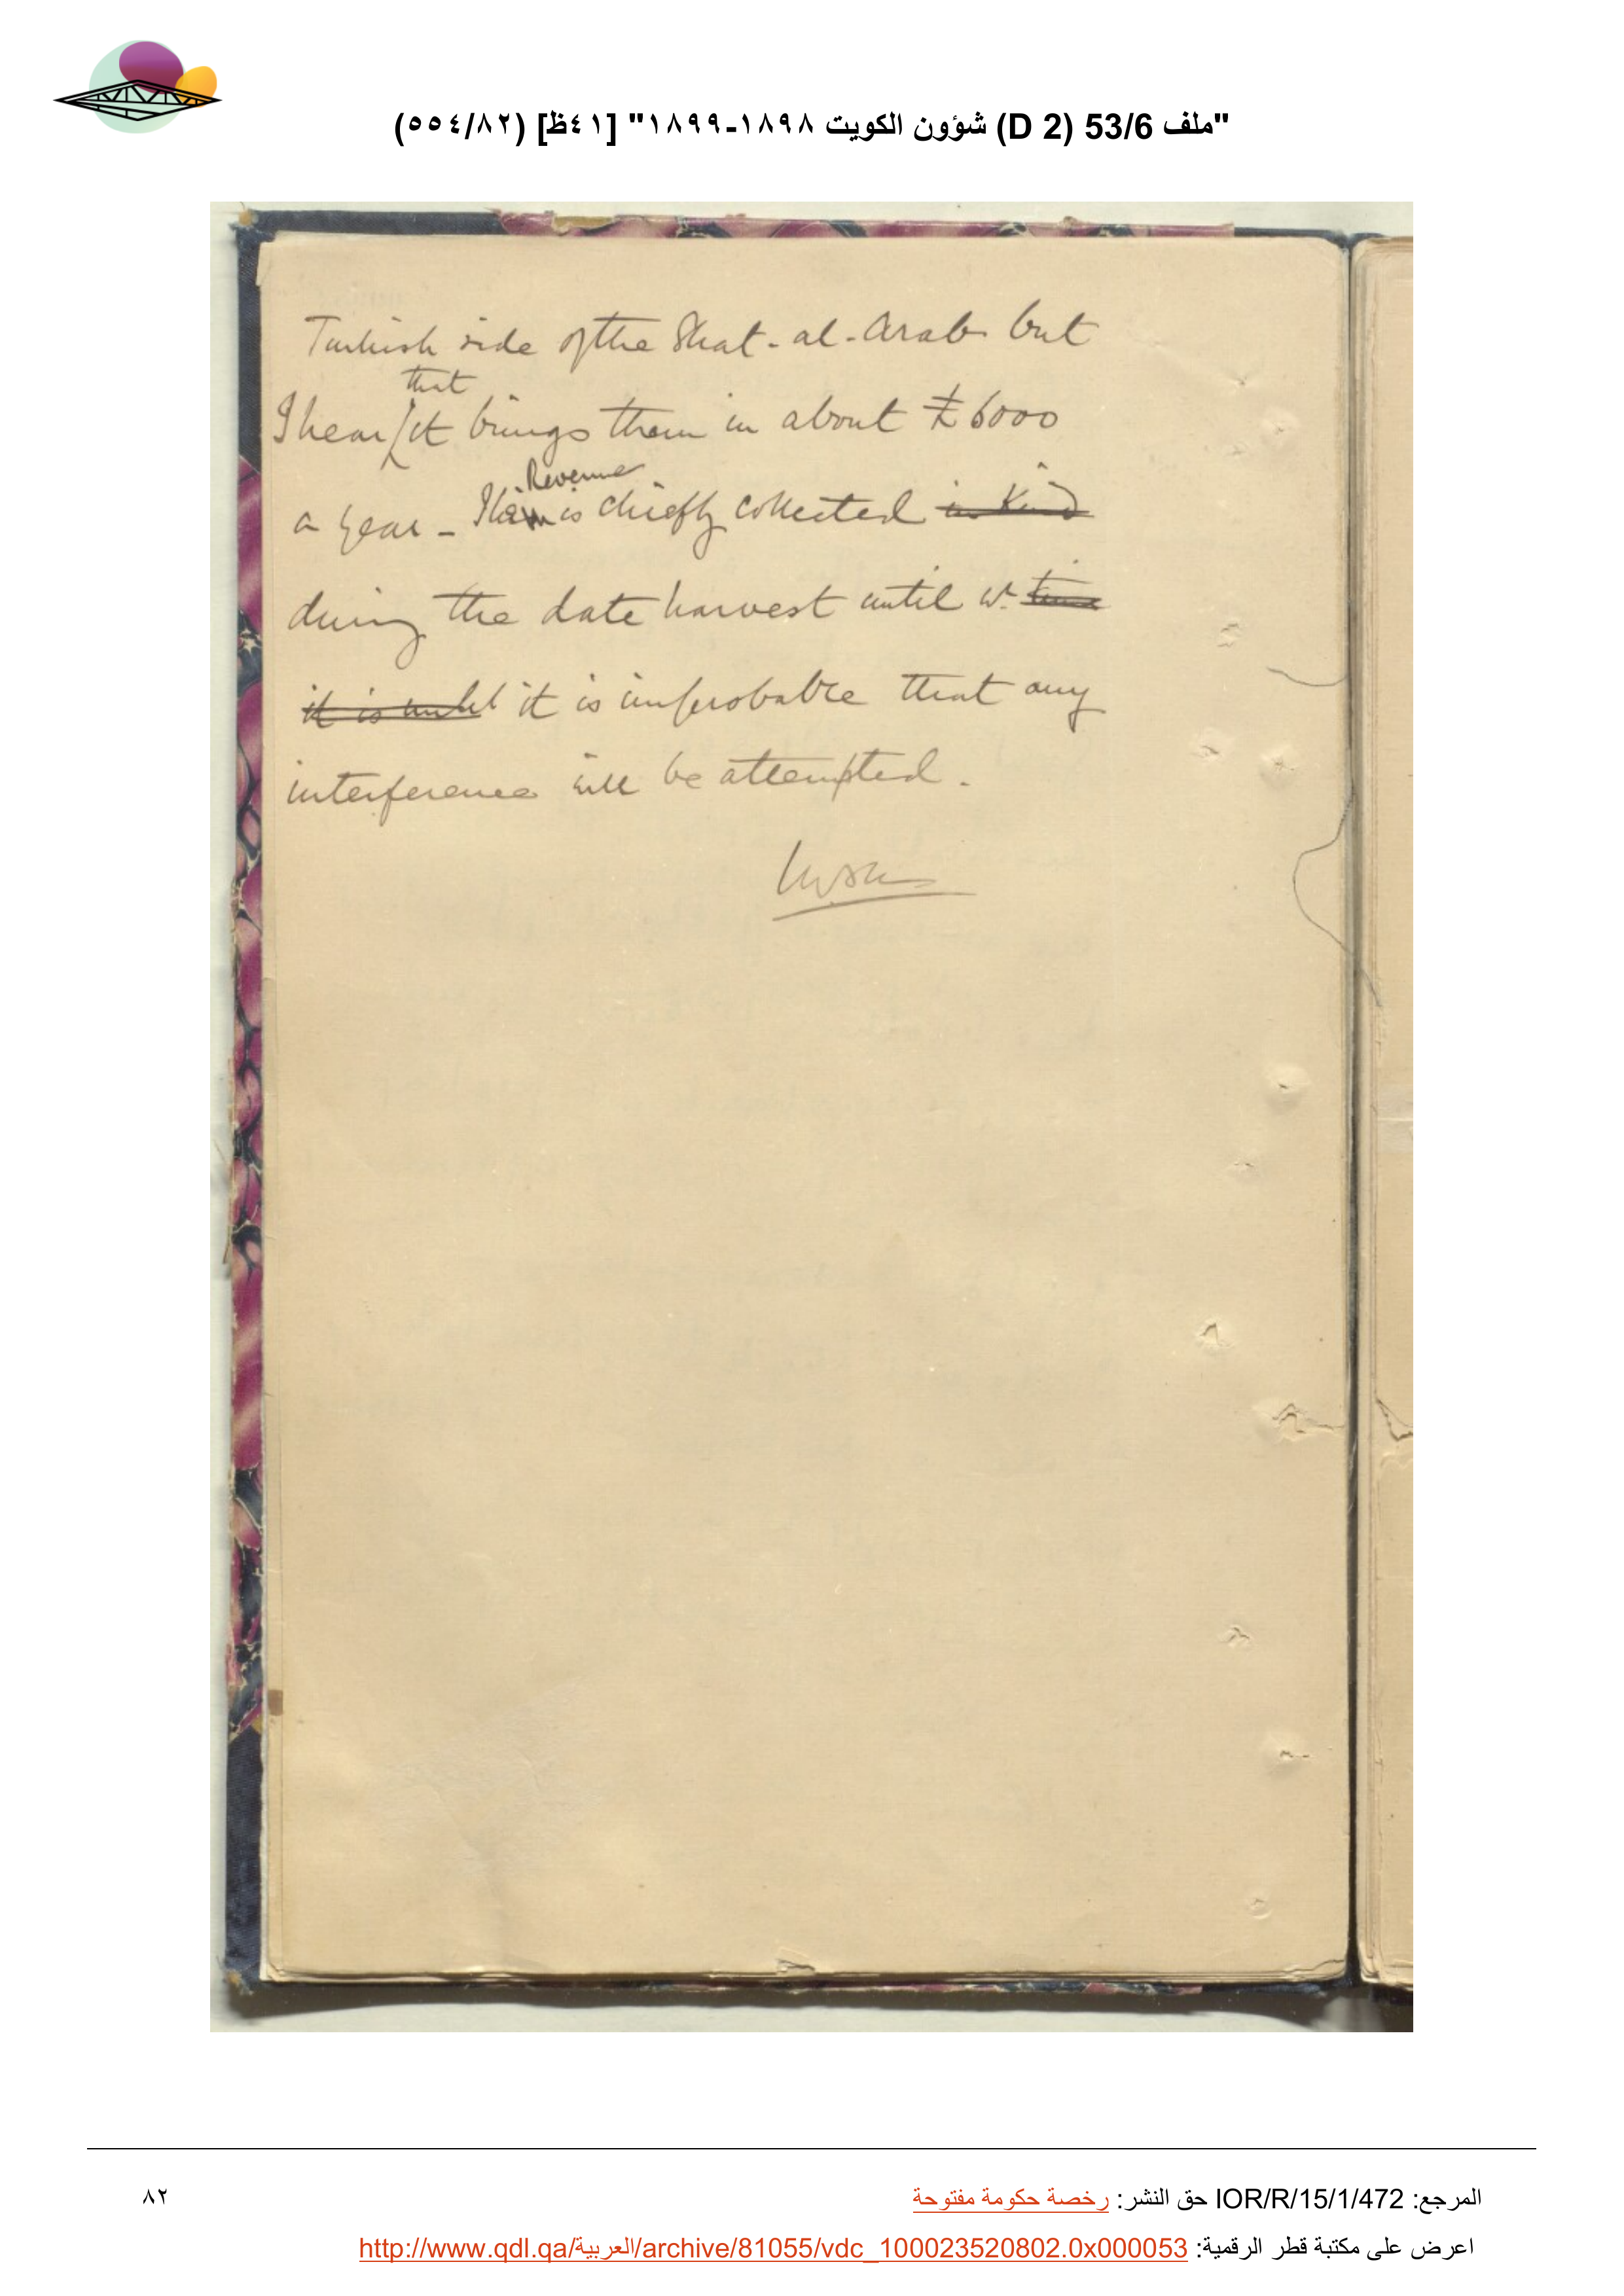 "ملف 53/6 (D 2) شؤون الكويت ١٨٩٨-١٨٩٩" [٤١ظ] (٥٥٤/٨٢)
Turkish side of the Shat-al-Arab but
that
I hear it brings them in about £6000
Revenue
a year - This is chiefly collected in kind
during the date harvest until wh time
it is until it is improbable that any
interference will be attempted.
المرجع: IOR/R/15/1/472 حق النشر: رخصة حكومة مفتوحة
٨٢
اعرض على مكتبة قطر الرقمية: http://www.qdl.qa/العربية/archive/81055/vdc_100023520802.0x000053